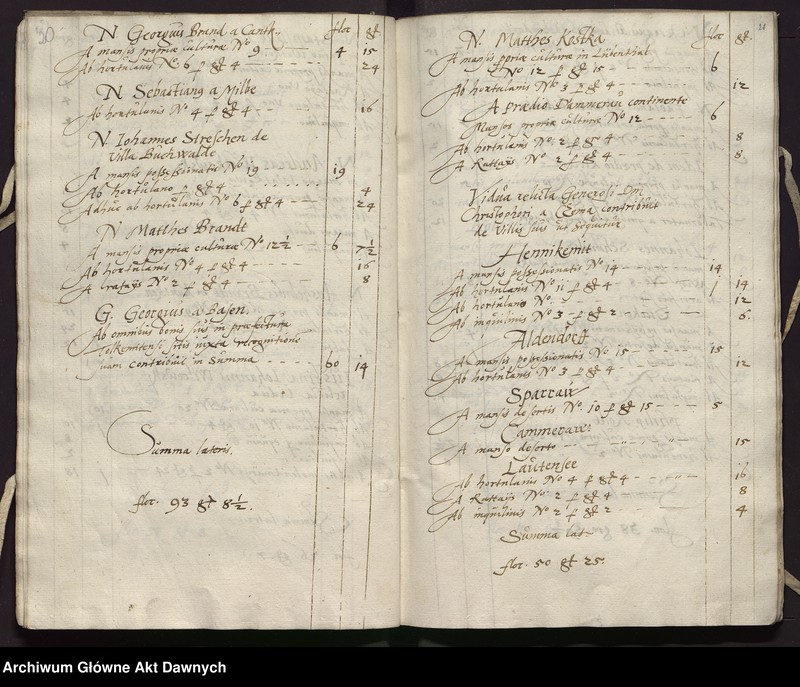 30
N Georgius Brand a Cantk. flor gr.
A mansis propriæ culturæ No 9 4 15
Ab hortulanis No 6 p gr 4 24
N Sebastianus a Milbe
Ab hortulanis No 4 p gr 4 16
N. Iohannes Streschen de
Villa Buchwalde
A mansis possessionatis No 19 19
Ab hortulano p gr 4 4
Adhuc ab hortulanis No 6 p gr 4 24
N Matthes Brandt
A mansis propriæ culturæ No 12½ 6 7½
Ab hortulanis No 4 p gr 4 16
A ratays No 2 p gr 4 8
G. Georgius a Basen.
Ab omnibus bonis suis in præfectura
Tolkemitensi sitis iuxta recognitione
suam contribuit in Summa 60 14
Summa lateris.
flor. 93 gr 8½.
31
N. Matthes Kostka flor gr.
A mansis ppriæ culturæ in Lubenthal
No 12 p gr 15 6
Ab hortulanis No 3 p gr 4 12
A Prædio Dammerau continente
Mansos propriæ culturæ No 12 6
Ab hortulanis No 2 p gr 4 8
A Rattays No 2 p gr 4 8
Vidua relicta Generosi Dni
Christophori a Esma contribuit
de Villis suis ut sequitur
Hennikemit
A mansis possessionatis No 14 14
Ab hortulanis No 11 p gr 4 1 14
Ab hortulanis No 12
Ab inquilinis No 3 p gr 2 6.
Aldendorff
A mansis possessionatis No 15 15
Ab hortulanis No 3 p gr 4 12
Sparraw
A mansis desertis No. 10 p gr 15 5
Cammeraw:
A manso deserto 15
Lautensee
Ab hortulanis No 4 p gr 4 16
A Rattays No 2 p gr 4 8
Ab inquilinis No 2 p gr 2 4
Summa lat
flor. 50 gr 25.
Archiwum Główne Akt Dawnych